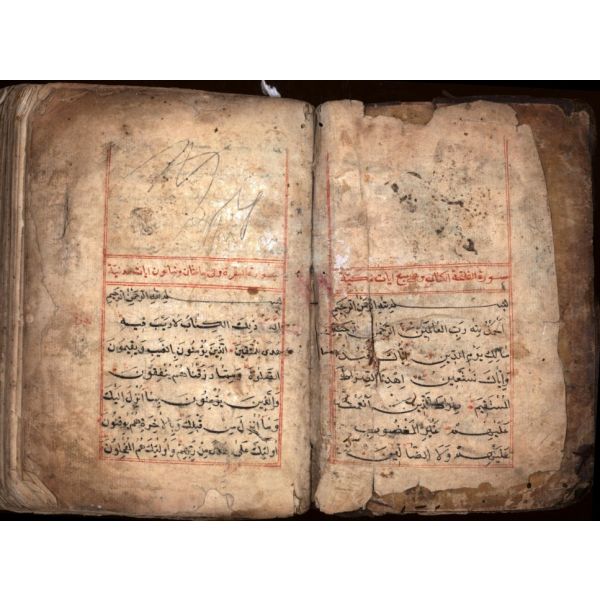 سورة الفاتحة الكتاب وهي سبع ايات مكية
بسم الله الرحمن الرحيم
الحمد لله رب العالمين الرحمن الرحيم
مالك يوم الدين اياك نعبد
واياك نستعين اهدنا الصراط
المستقيم صراط الذين انعمت
عليهم غير المغضوب
عليهم ولا الضالين
سورة البقرة وهي مائتان وثمانون ايات مدنية
بسم الله الرحمن الرحيم
الم ذلك الكتاب لا ريب فيه
هدى للمتقين الذين يؤمنون بالغيب ويقيمون
الصلوة ومما رزقناهم ينفقون
والذين يؤمنون بما انزل اليك
وما انزل من قبلك وبالاخرة هم يوقنون
اولئك على هدى من ربهم واولئك هم المفلحون